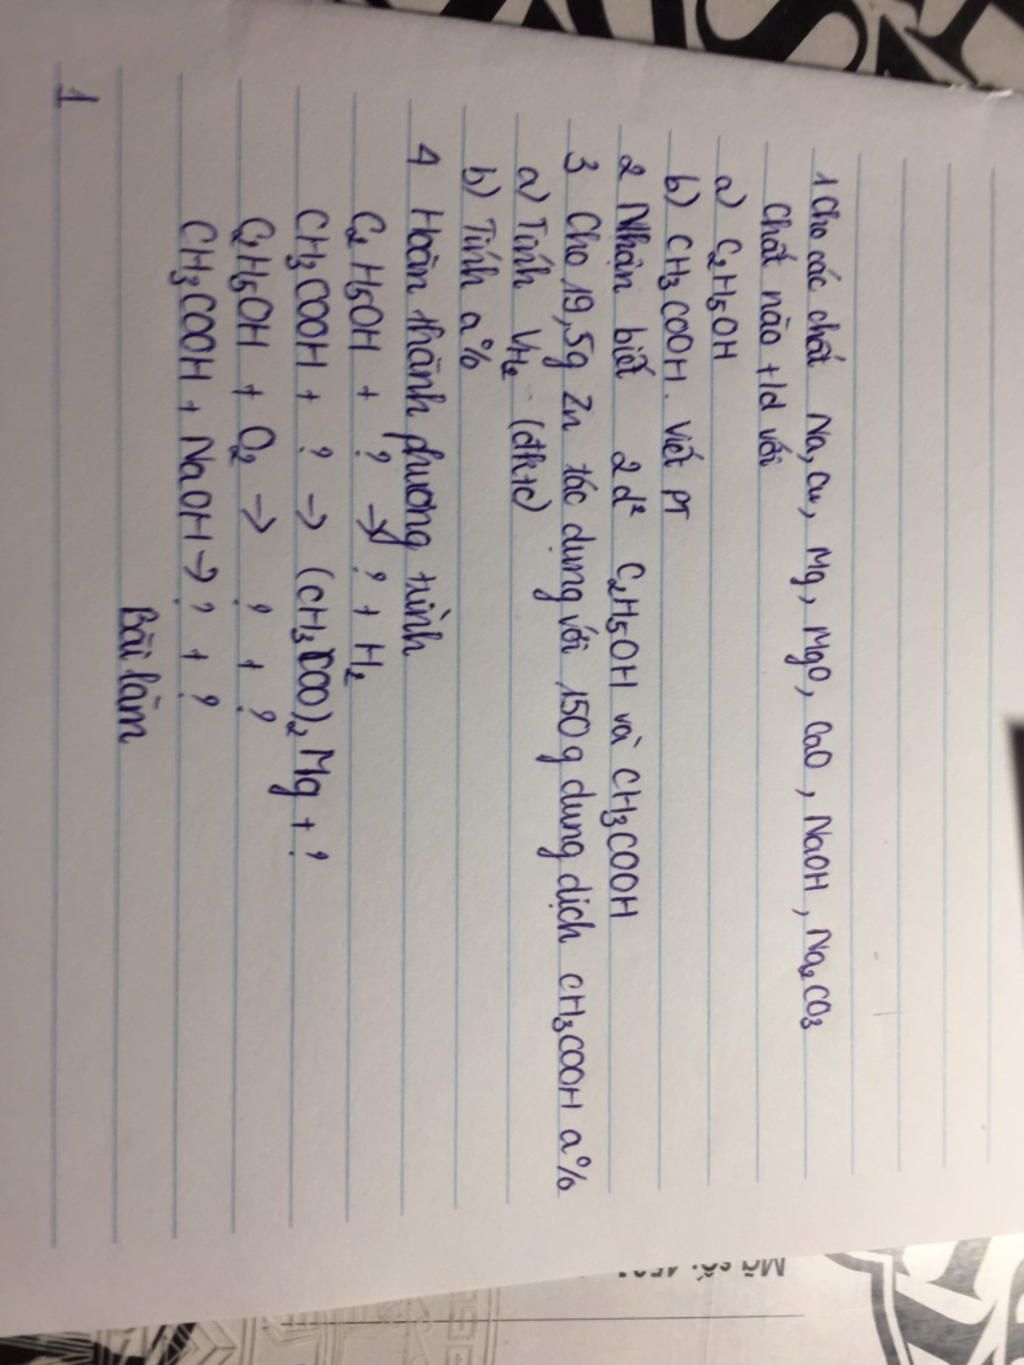 1 Cho các chất Na, Cu, Mg, MgO, CaO, NaOH, Na₂CO₃
Chất nào t/d với
a) C₂H5OH
b) CH₃COOH. Viết PT
2 Nhận biết 2d² C₂H5OH và CH₃COOH
3 Cho 19,5g Zn tác dụng với 150g dung dịch CH₃COOH a%
a) Tính VH₂ (đktc)
b) Tính a%
4 Hoàn thành phương trình
C₂H5OH + ? → ? + H₂
CH₃COOH + ? → (CH₃COO)₂Mg + ?
C₂H5OH + O₂ → ? + ?
CH₃COOH + NaOH → ? + ?
Bài làm
1
Mã số: